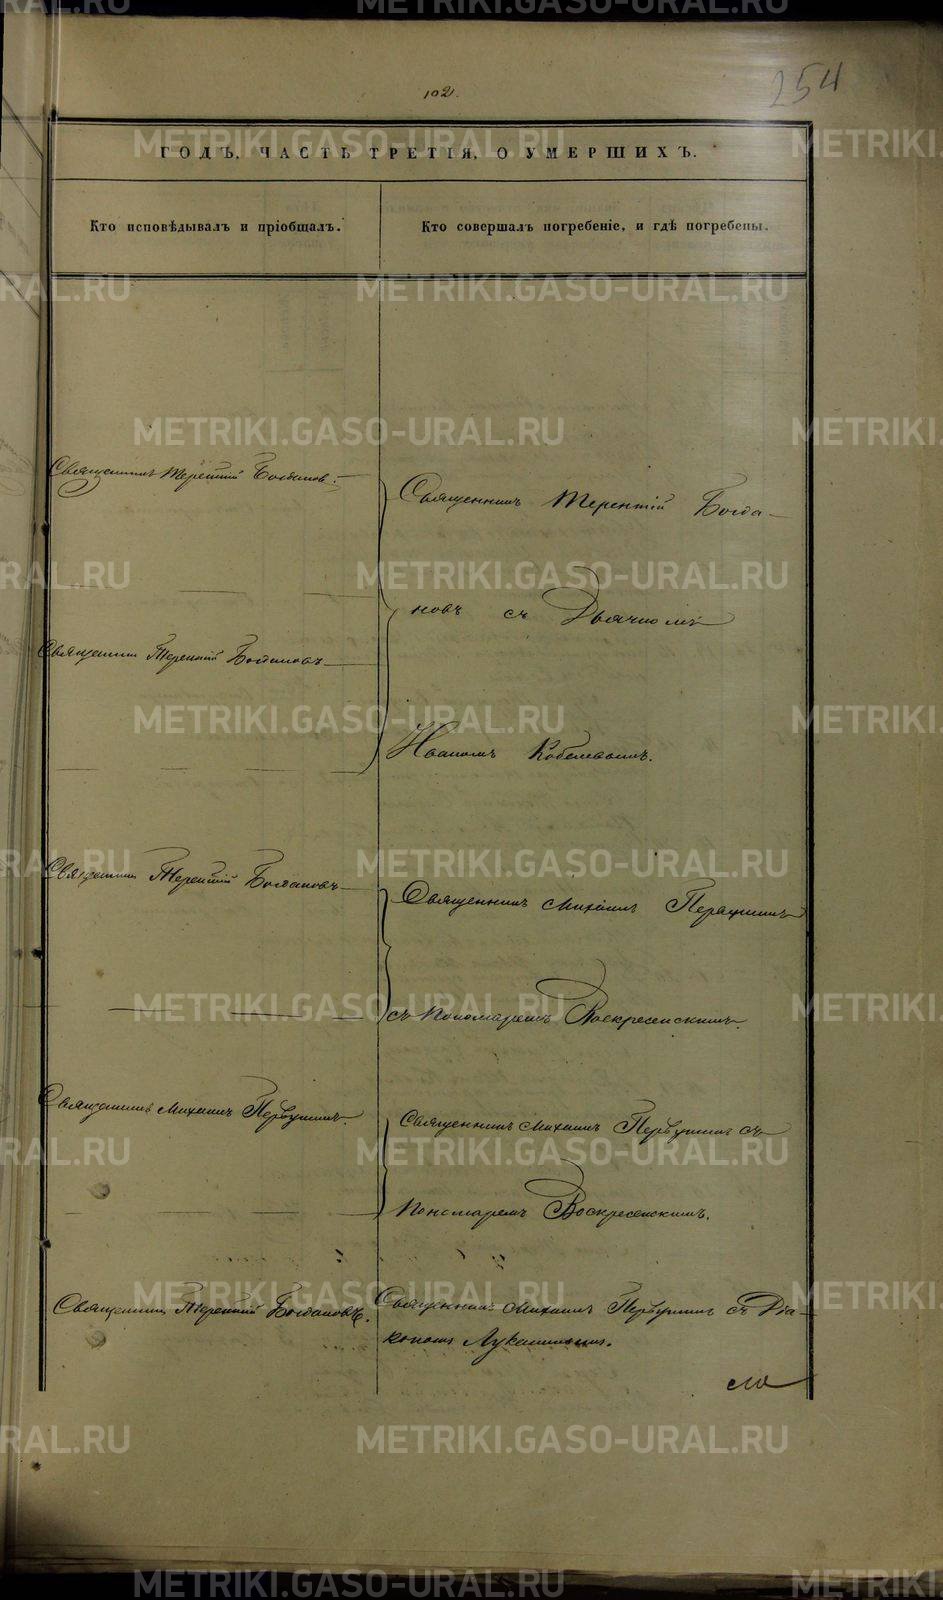 102.
254
ГОДЪ, ЧАСТЬ ТРЕТІЯ, О УМЕРШИХЪ.
Кто исповѣдывалъ и пріобщалъ.
Кто совершалъ погребеніе, и гдѣ погребены.
Священникъ Терентій Богданов.
Священникъ Терентій Богда-
новъ съ Дьячкомъ
Священник Терентій Богдановъ
Иваномъ Кобелевымъ.
Священник Терентій Богдановъ
Священникъ Михаилъ Первушинъ
съ пономаремъ Воскресенскимъ.
Священникъ Михаилъ Первушинъ.
Священникъ Михаилъ Первушинъ съ
пономаремъ Воскресенскимъ.
Священникъ Терентій Богдановъ.
Священникъ Михаилъ Первушинъ съ Діа-
кономъ Лукашинымъ.
METRIKI.GASO-URAL.RU